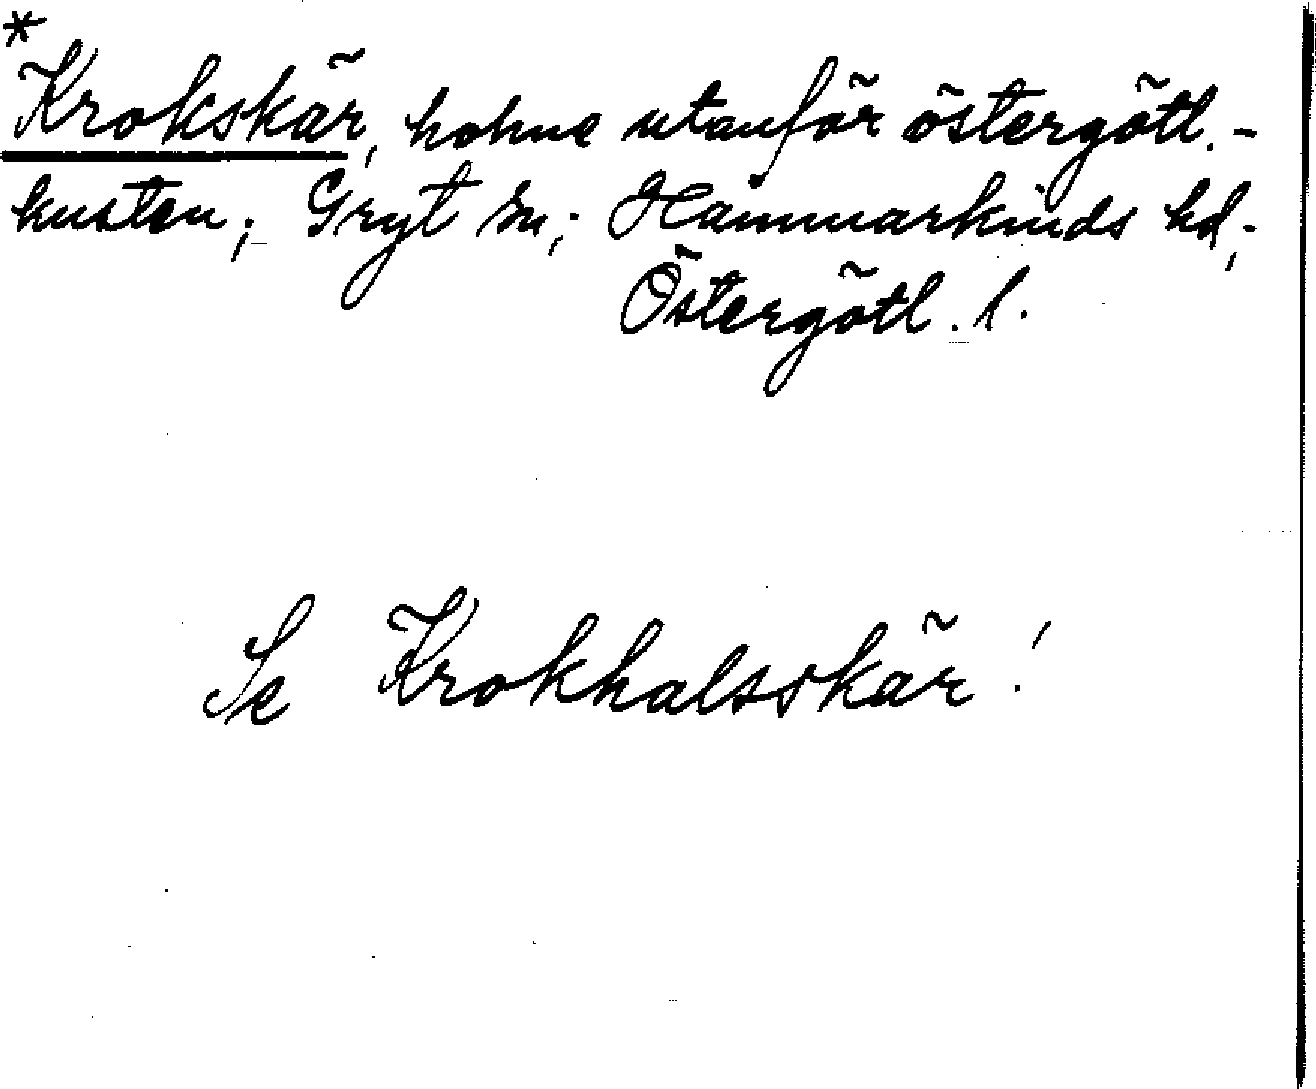 *
Krokskär, holme utanför östergötl.-
kusten; Gryt sn; Hammarkinds hd;
Östergötl. l.
Se Krokhalsskär!